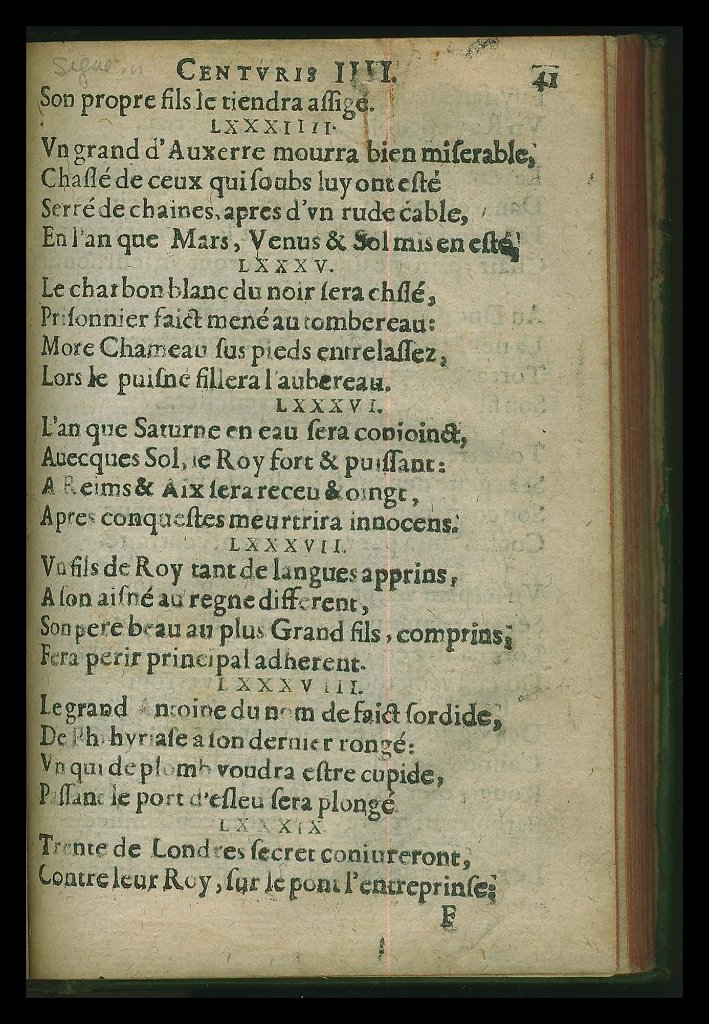 Signe
CENTVRIS IIII. 41
Son propre fils le tiendra assigé.
LXXXIIII.
Vn grand d'Auxerre mourra bien miserable,
Chassé de ceux qui soubs luy ont esté
Serré de chaines, apres d'vn rude cable,
En l'an que Mars, Venus & Sol mis en esté,
LXXXV.
Le charbon blanc du noir sera chssé,
Prisonnier faict mené au tombereau:
More Chameau sus pieds entrelassez,
Lors le puisné fillera l'aubereau.
LXXXVI.
L'an que Saturne en eau sera conioinct,
Auecques Sol, le Roy fort & puissant:
A Reims & Aix sera receu & oingt,
Apres conquestes meurtrira innocens.
LXXXVII.
Vn fils de Roy tant de langues apprins,
A son aisné au regne different,
Son pere beau au plus Grand fils, comprins;
Fera perir principal adherent.
LXXXVIII.
Le grand Antoine du nom de faict sordide,
De Phthyriase a son dernier rongé:
Vn qui de plomb voudra estre cupide,
Passant le port d'esleu sera plongé
LXXXIX.
Trente de Londres secret coniureront,
Contre leur Roy, sur le pont l'entreprinse;
F